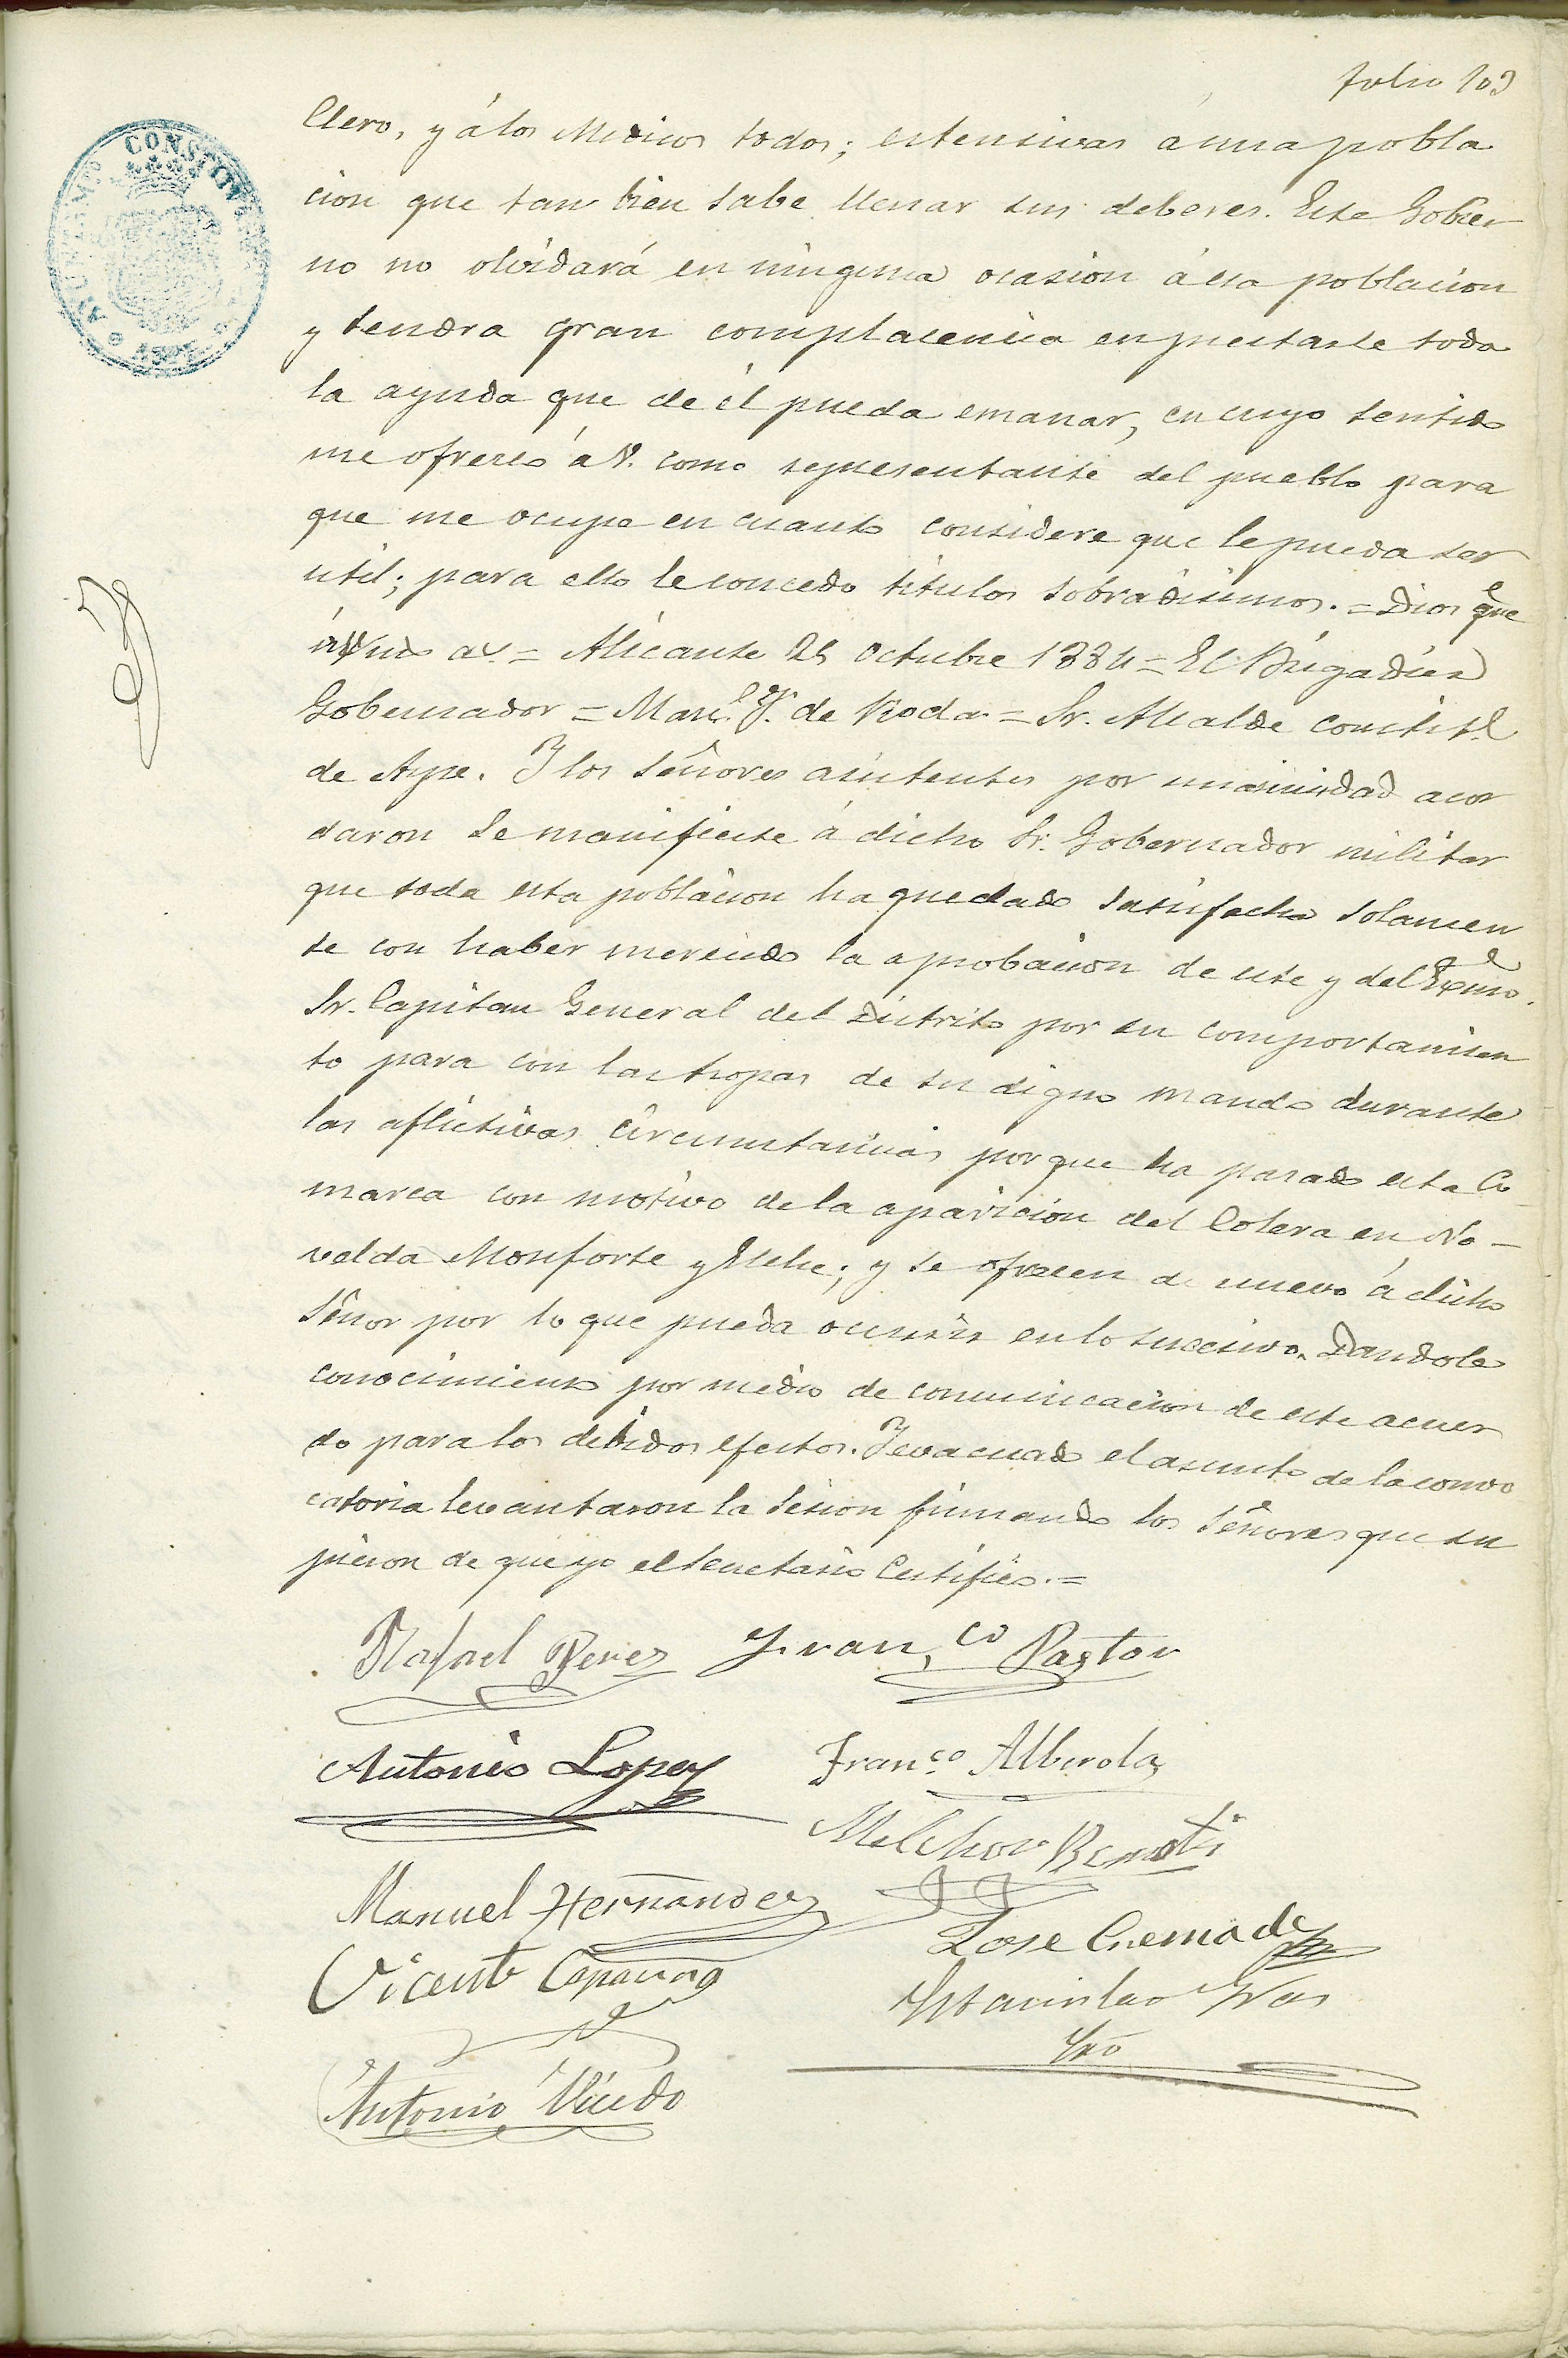 Folio 103
Clero, y á los Medicos todos; estensivas á una pobla
cion que tan bien sabe llenar sus deberes. Este Gobier
no no olvidará en ninguna ocasion á esa poblacion
y tendra gran complacencia en prestarle toda
la ayuda que de él pueda emanar, en cuyo sentido
me ofrezco á V. como representante del pueblo para
que me ocupe en cuanto considere que le pueda ser
útil; para ello le concedo titulos sobradisimos. = Dios gue
á V. = Alicante 25 Octubre 1884 = El Brigadier
Gobernador = Manl. de Roda = Sr. Alcalde constitl
de Aspe. Y los Señores asistentes por unanimidad acor
daron se manifieste á dicho Sr. Gobernador militar
que toda esta poblacion ha quedado satisfecha solamen
te con haber merecido la aprobacion de este y del Exmo.
Sr. Capitan General del Distrito por su comportamien
to para con las tropas de su digno mando durante
las aflictivas circunstancias porque ha pasado esta Co
marca con motivo de la aparicion del Colera en No-
velda Monforte y Elche; y se ofrecen de nuevo á dicho
Señor por lo que pueda ocurrir en lo sucesivo. Dandole
conocimiento por medio de comunicacion de este acuer
do para los debidos efectos. Y evacuado el asunto de la convo
catoria levantaron la sesion firmando los Señores que su
pieron de que yo el Secretario Certifico. =
Rafael Perez Franco Pastor
Antonio Lopez Franco. Alberola
Melchor Benati
Manuel Hernandez
Jose Cremades
Vicente
Srio
Antonio Vicedo
AYUNTAMIENTO CONSTITUCIONAL ASPE